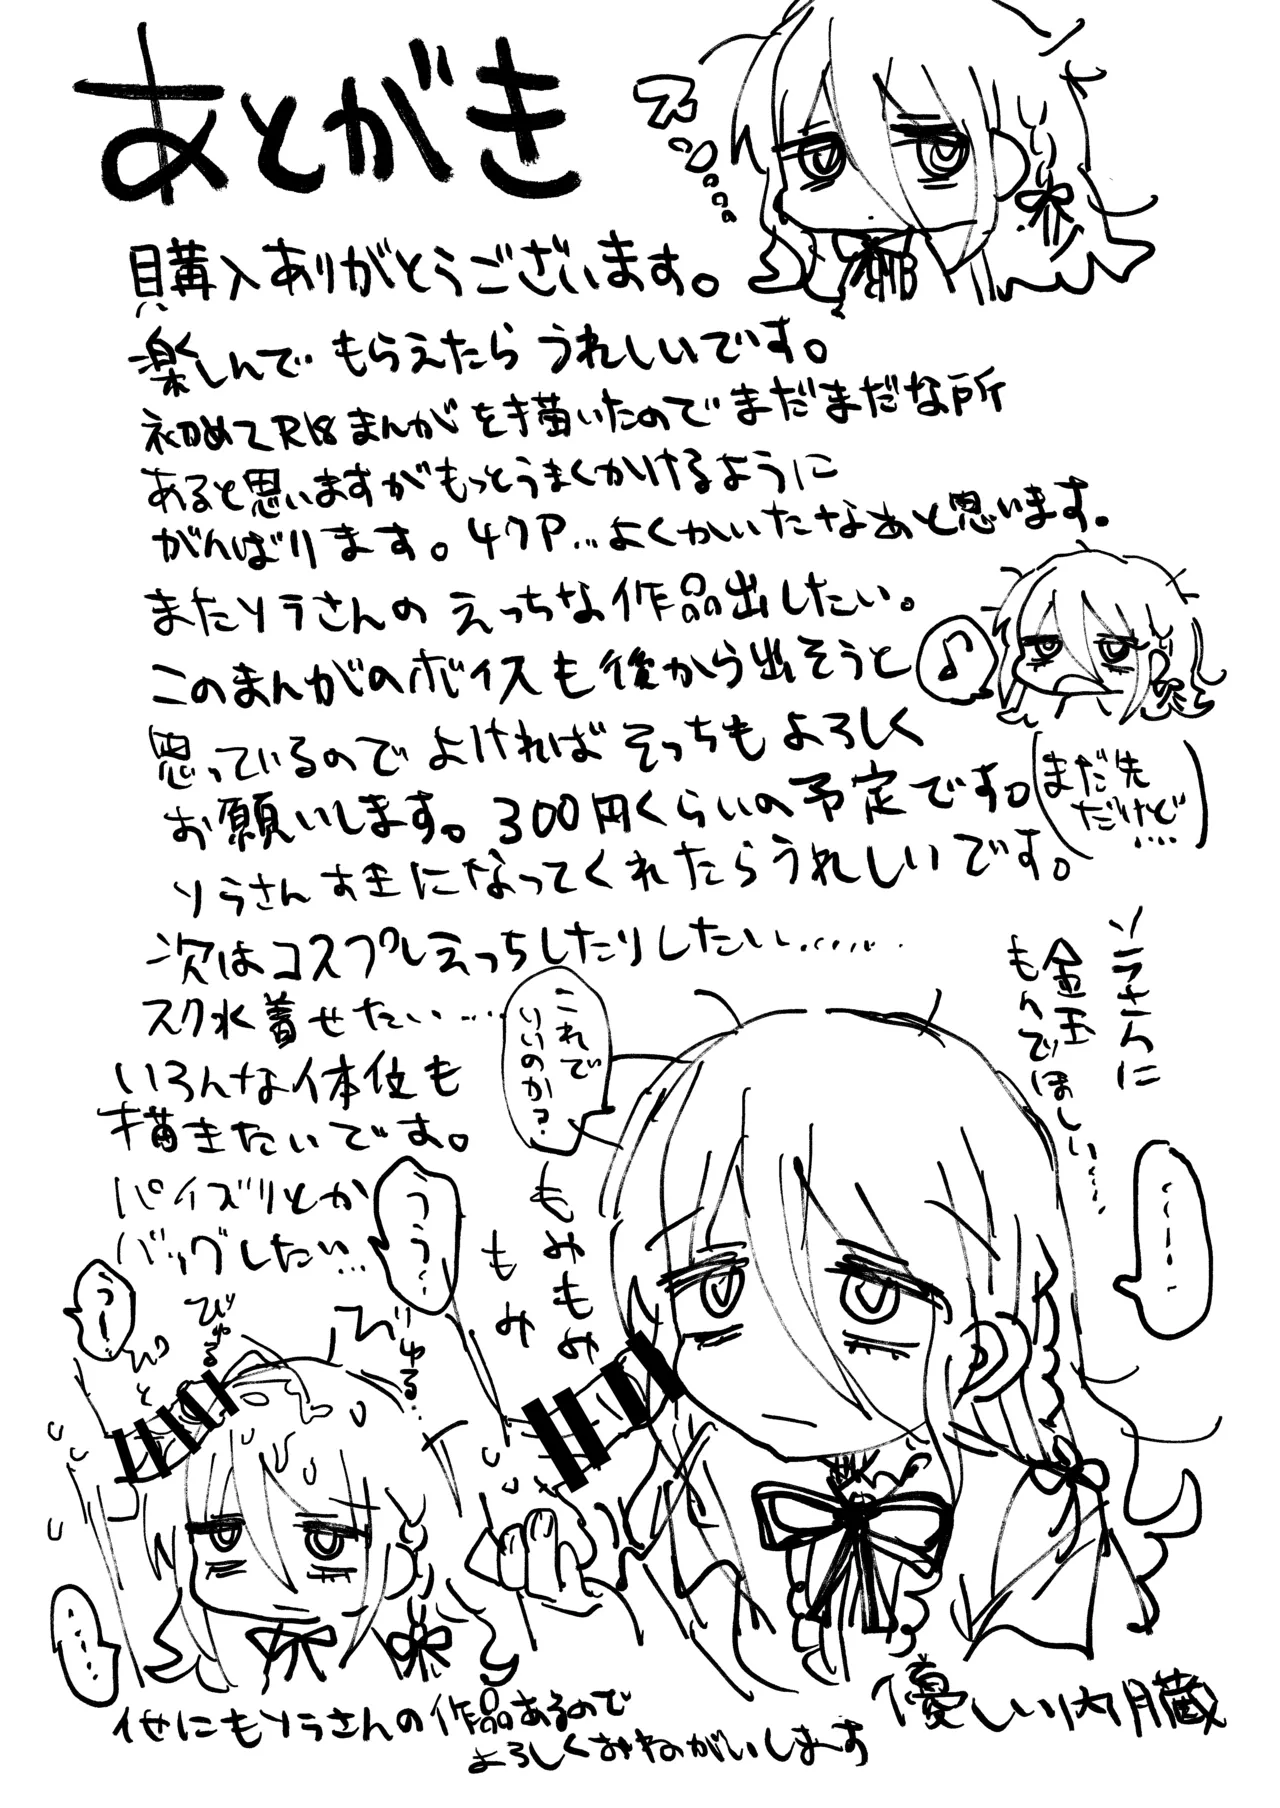 あとがき
ス…
購入ありがとうございます。
楽しんでもらえたらうれしいです。
初めてR18まんがを描いたのでまだまだな所
あると思いますがもっとうまくかけるように
がんばります。47P…よくかいたなぁと思います。
またソラさんのえっちな作品出したい。
このまんがのボイスも後から出そうと
思っているのでよければそっちもよろしく
お願いします。300円くらいの予定です。
(まだ先
だけど…)
ソラさんすきになってくれたらうれしいです。
次はコスプレえっちしたりしたい……
スク水着せたい…
いろんな体位も
描きたいです。
パイズリとか
バックしたい…
ソラさんに
金玉
もんでほしい……
これで
いいのか?
……
もみもみ
もみ
うぅ…
うー!
びゅるる
びゅる…
……
他にもソラさんの作品あるので
よろしくおねがいします
優しい内臓